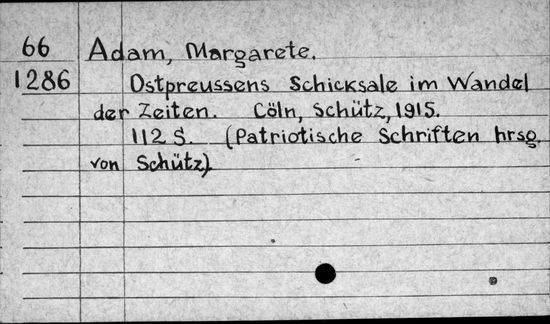 66 Adam, Margarete.
1286 Ostpreussens Schicksale im Wandel
der Zeiten. Cöln, Schütz, 1915.
112 S. (Patriotische Schriften hrsg.
von Schütz)